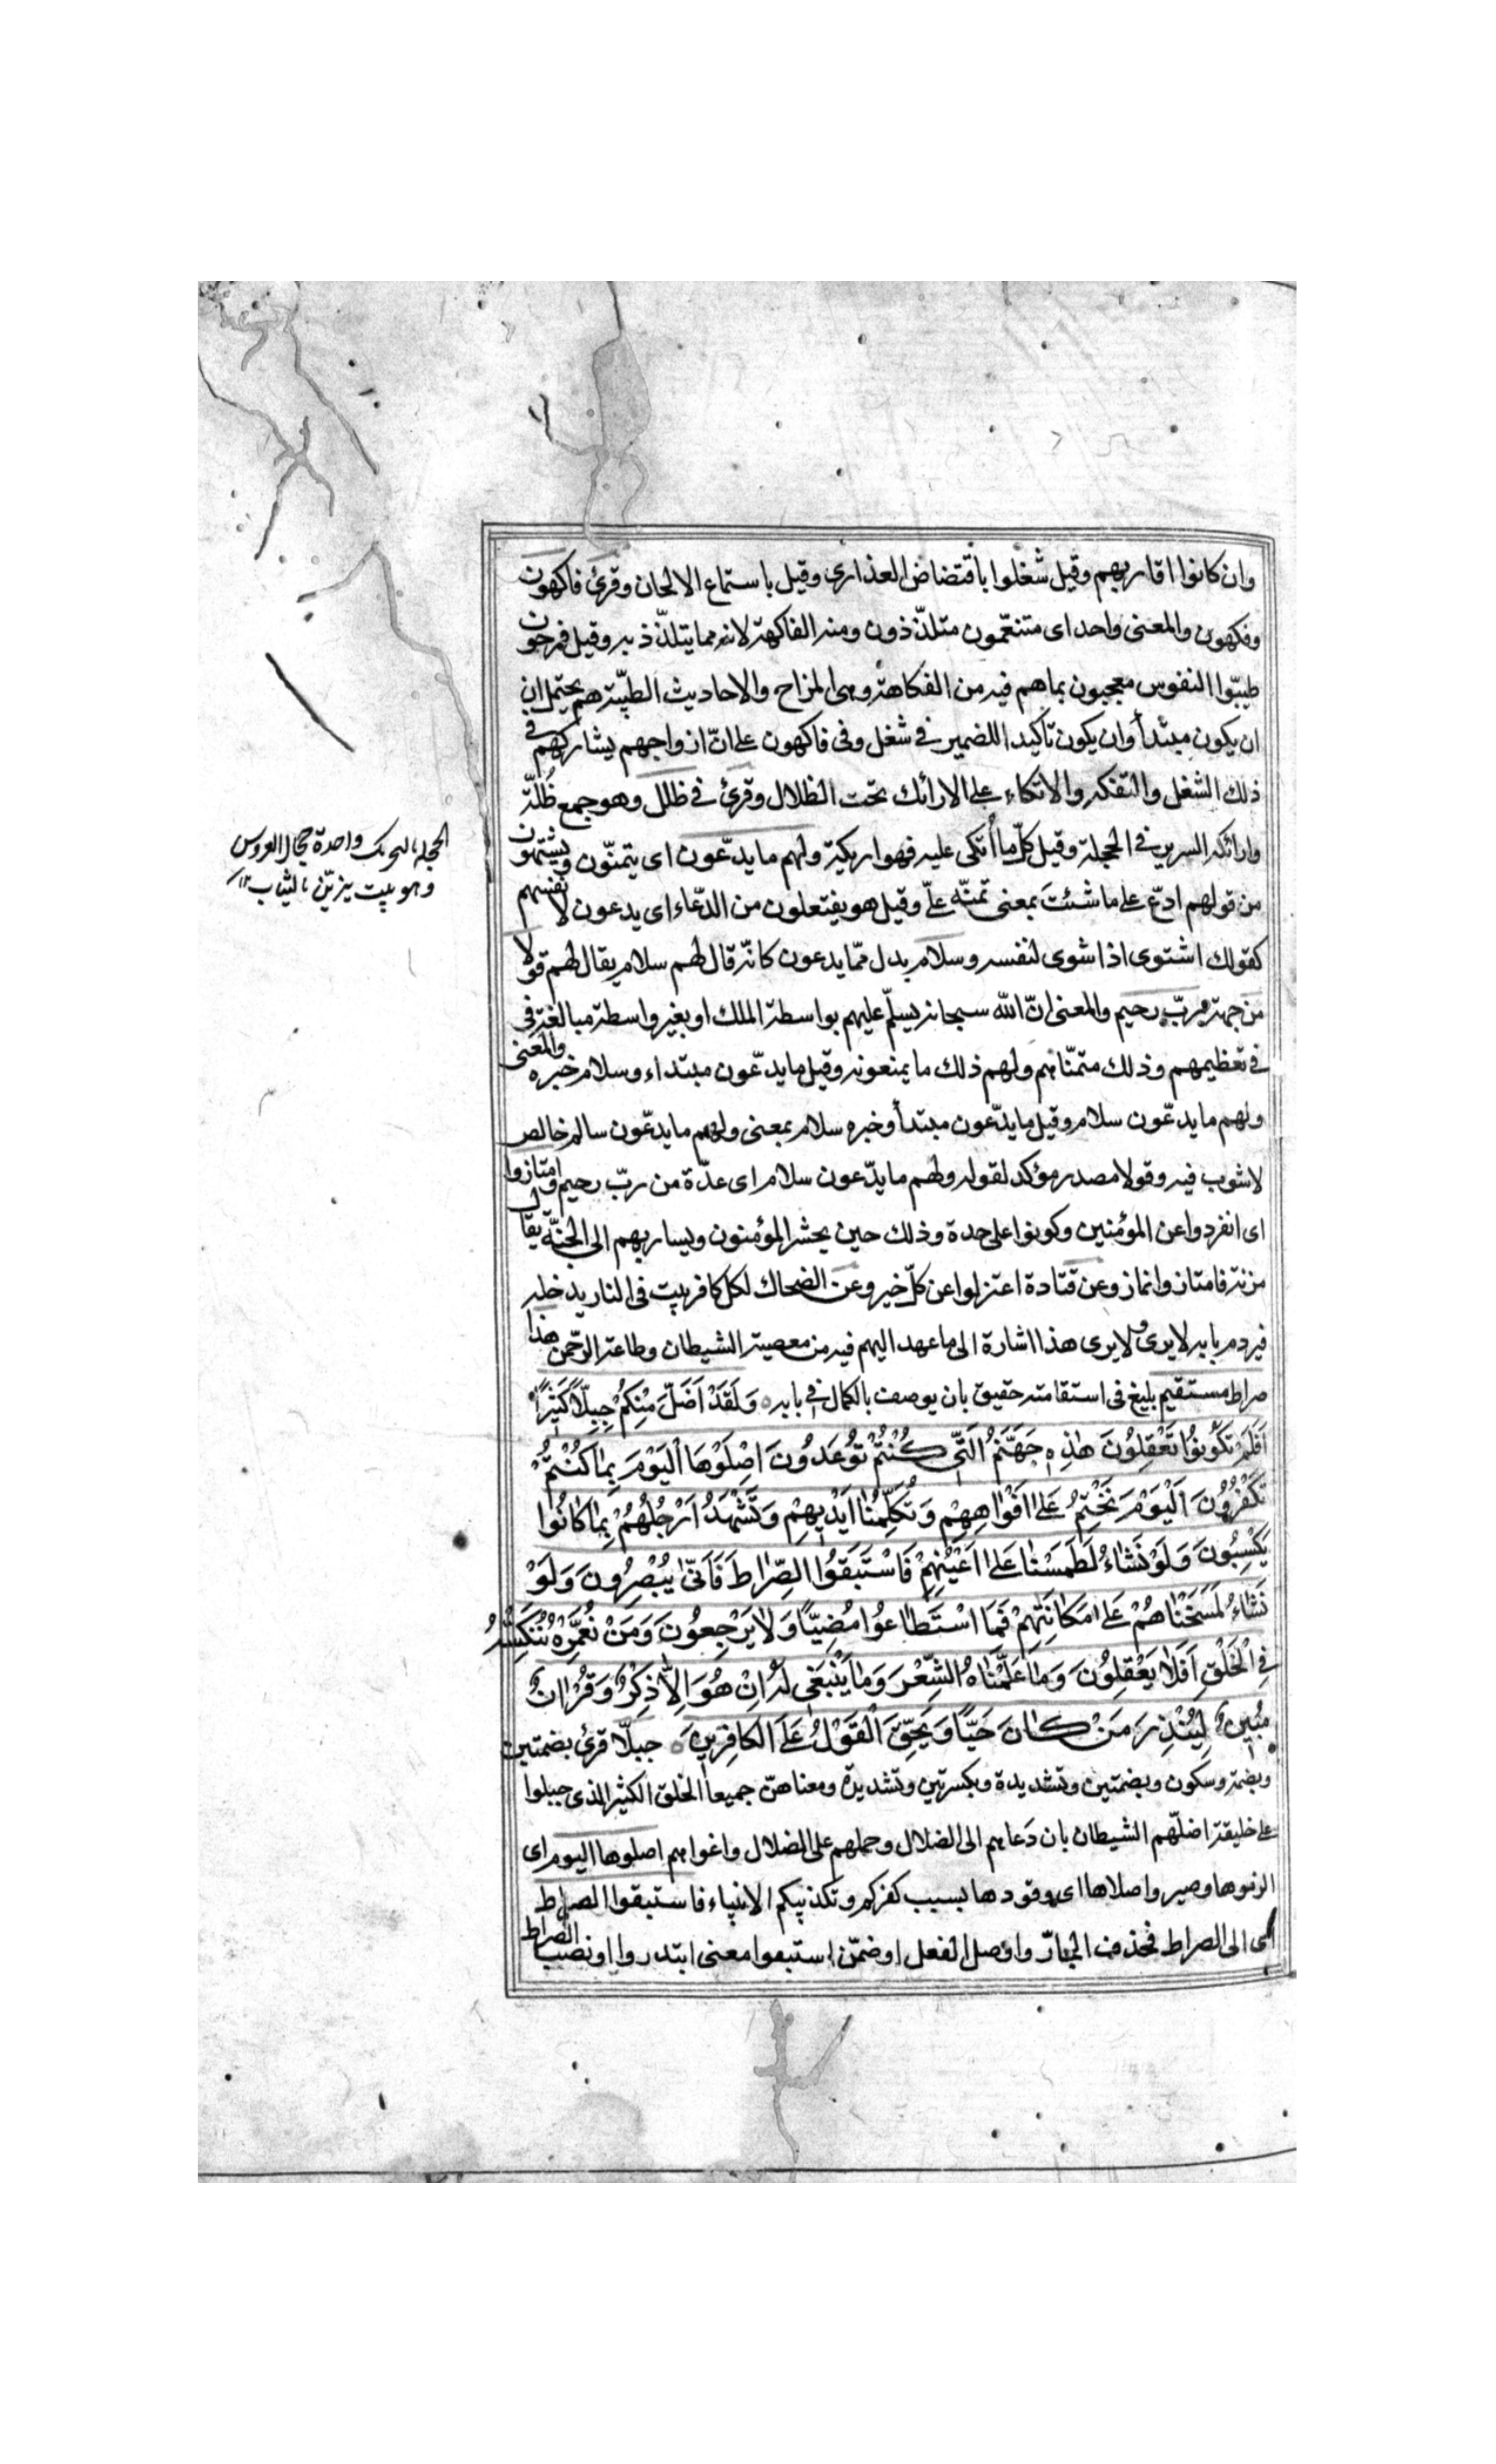 وان كانوا اقاربهم وقيل شغلوا باقتضاض العذارى وقيل باستماع الالحان وقرئ فاكهون
وفكهون والمعنى واحد اى متنعّمون متلذّذون ومنه الفاكهة لانه مما يتلذّذ به وقيل فرحون
طيبّوا النفوس معجبون بماهم فيه من الفكاهة وهى المزاح والاحاديث الطيّبة هم يحتمل ان
ان يكون مبتدأ وان يكون تأكيدا للضمير فى شغل وفى فاكهون على انّ ازواجهم يشاركهم فى
ذلك الشغل والتفكه والاتكاء على الارائك تحت الظلال وقرئ فى ظلل وهو جمع ظُلّة
وارائكه السرير فى الحجلة وقيل كلّ ما أتكى عليه فهو اريكة ولهم ما يدّعون اى يتمنّون ويشتهون
من قولهم ادّع على ما شئتَ بمعنى تمنّه علىّ وقيل هو يفتعلون من الدّعاء اى يدعون لانفسهم
كقولك اشتوى اذا شوى لنفسه وسلام بدل ممّا يدعون كانّه قال لهم سلام يقال لهم قولا
من جهة ربّ رحيم والمعنى انّ الله سبحانه يسلّم عليهم بواسطة الملك او بغير واسطة مبالغة فى
فى تعظيمهم وذلك متمنّاهم ولهم ذلك ما يمنعونه وقيل ما يدّعون مبتداء وسلام خبره والمعنى
ولهم ما يدّعون سلام وقيل ما يدّعون مبتدأ وخبره سلام بمعنى ولهم ما يدّعون سالم خالص
لا شوب فيه وقولا مصدر مؤكد لقوله ولهم ما يدّعون سلام اى عدّة من ربّ رحيم وامتازوا
اى انفردوا عن المؤمنين وكونوا على حدة وذلك حين يحشر المؤمنون ويسار بهم الى الجنّة يقال
مزته فامتاز وانماز وعن قتادة اعتزلوا عن كلّ خير وعن الضحاك لكل كافر بيت فى النار يدخله
فيردم بابه لا يرى ولا يرى هذا اشارة الى ما عهد اليهم فيه من معصية الشيطان وطاعة الرحّمن هذا
صراط مستقيم بليغ فى استقامته حقيق بان يوصف بالكمال فى بابه ه وَلَقَدْ اَضَلَّ مِنْكُمْ جِبِلًّا كَثِيرًا
اَفَلَمْ تَكُونُوا تَعْقِلُونَ هٰذِهِ جَهَنَّمُ الَتِّى كُنْتُمْ تُوعَدُونَ اِصْلَوْهَا الْيَوْمَ بِمٰا كُنْتُمْ
تَكْفُرُونَ اَلْيَوْمَ نَخْتِمُ عَلىٰ اَفْوٰاهِهِمْ وَتُكَلِّمُنٰا اَيْدِيهِمْ وَتَشْهَدُ اَرْجُلُهُمْ بِمٰا كٰانُوا
يَكْسِبُونَ وَلَوْ نَشٰاءُ لَطَمَسْنٰا عَلىٰ اَعْيُنِهِمْ فَاسْتَبَقُوا الصِّرٰاطَ فَاَنّىٰ يُبْصِرُونَ وَلَوْ
نَشٰاءُ لَمَسَخْنٰاهُمْ عَلىٰ مَكٰانَتِهِمْ فَمَا اسْتَطٰاعُوا مُضِيًّا وَلٰا يَرْجِعُونَ وَمَنْ نُعَمِّرْهُ نُنَكِّسْهُ
فِى الْخَلْقِ اَفَلٰا يَعْقِلُونَ وَمٰا عَلَّمْنٰاهُ الشِّعْرَ وَمٰا يَنْبَغِى لَهُ اِنْ هُوَ اِلّٰا ذِكْرٌ وَقُرْاٰنٌ
مُبِينٌ لِيُنْذِرَ مَنْ كٰانَ حَيًّا وَيَحِقَّ الْقَوْلُ عَلَى الْكافِرِينَ ه جبلّا قرئ بضمتين
وبضمة وسكون وبضمتين وتشديدة وبكسرتين وتشديدة ومعناهنّ جميعا الخلق الكثير الذى جبلوا
على خليقة اضلّهم الشيطان بان دعاهم الى الضلال وحملهم على الضلال واغواهم اصلوها اليوم اى
الزموها وصيروا صلاها اى وقودها بسبب كفركم وتكذيبكم الانبياء فاستبقوا الصراط
اى الى الصراط فحذف الجارّ واوصل الفعل او ضمّن استبقوا معنى ابتدروا او نصب الصراط
الحجلة بالتحريك واحدة حجال العروس
وهو بيت يزيّن بالثياب ١٢